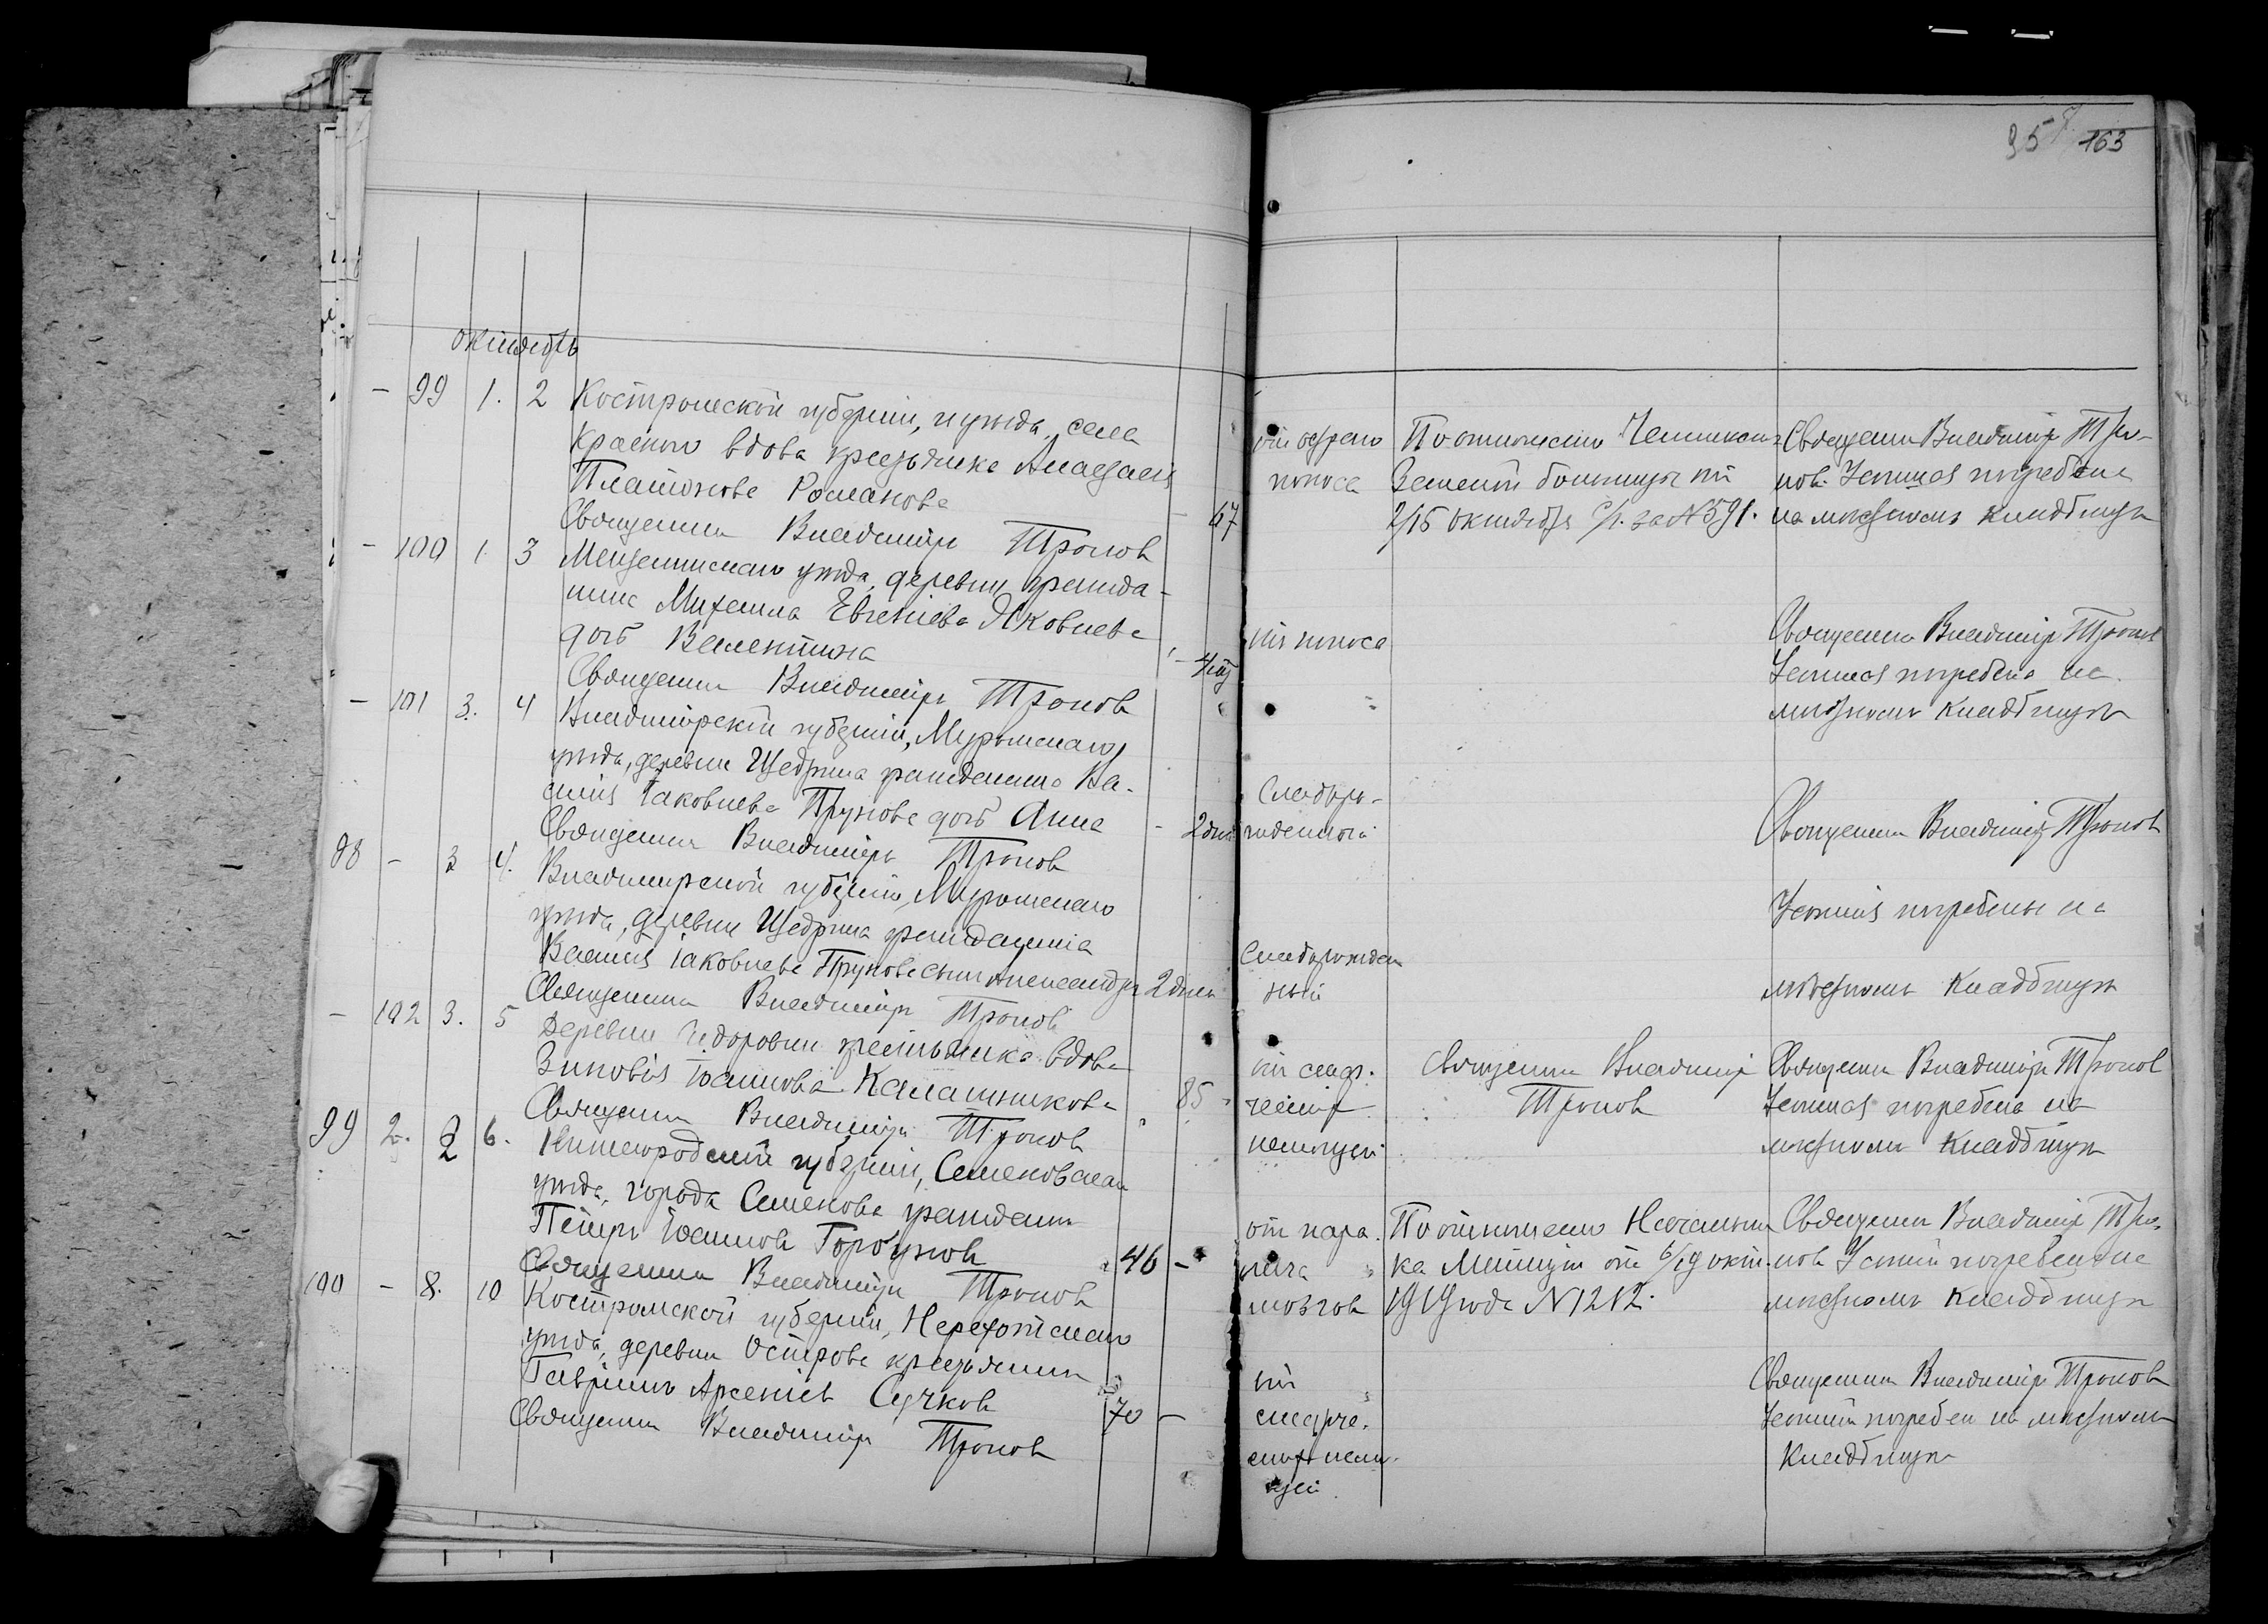 95 163
октябрь
– 99 1. 2 Костромской губернии, и уезда, села
Красного вдова крестьянка
Платонова Романова – 67
Священник Владимир Тронов
от острого поноса
По отношению
Земской больницы от
2/15 октября с/г. за № 591.
Священник Владимир Тро-
нов. Усопшая погребена
на местном кладбище
– 100 1 3 уезда, деревни, граждани-
нина Михаила Евгениева Яковлева
дочь Валентина
Священник Владимир Тронов
от поноса
Священник Владимир Тронов
Усопшая погребена на
местном кладбище
– 101 3. 4 Владимирской губернии, Муромского
уезда, деревни Щедрина гражданина Ва-
силия Иаковлева Прунова дочь Анна – 2 дня
Священник Владимир Тронов
Слаборо-
жденной
Священник Владимир Тронов
98 – 3 4. Владимирской губернии, Муромского
уезда, деревни Щедрина гражданина
Василия Іаковлева Прунова сын Александр 2 дня
Священник Владимир Тронов
Слаборожден
ный
Усопшия погребены на
местном кладбище
– 102 3. 5 Деревни крестьянка вдова
Зиновия Иоаннова Калашникова 85
Священник Владимир Тронов
от стар-
ческой
немощи
Священник Владимир
Тронов
Священник Владимир Тронов
Усопшая погребена на
местном кладбище
99 2. 2 6. Нижегородской губернии, Семеновскаго
уезда, города Семенова гражданин
Петр Иоаннов Горбунов 46 –
Священник Владимир Тронов
от пара-
лича
мозгов
По отношению Начальни
ка Милиции от 6/19 окт.
1919 года № 1212.
Священник Владимир Тро-
нов Усопший погребен на
местном кладбище
100 – 8. 10 Костромской губернии, Нерехотскаго
уезда, деревни Острова крестьянин
Гавриил Арсениев Сучков 70 –
Священник Владимир Тронов
от
старче-
ской немо-
щи
Священник Владимир Тронов
Усопший погребен на местном
кладбище